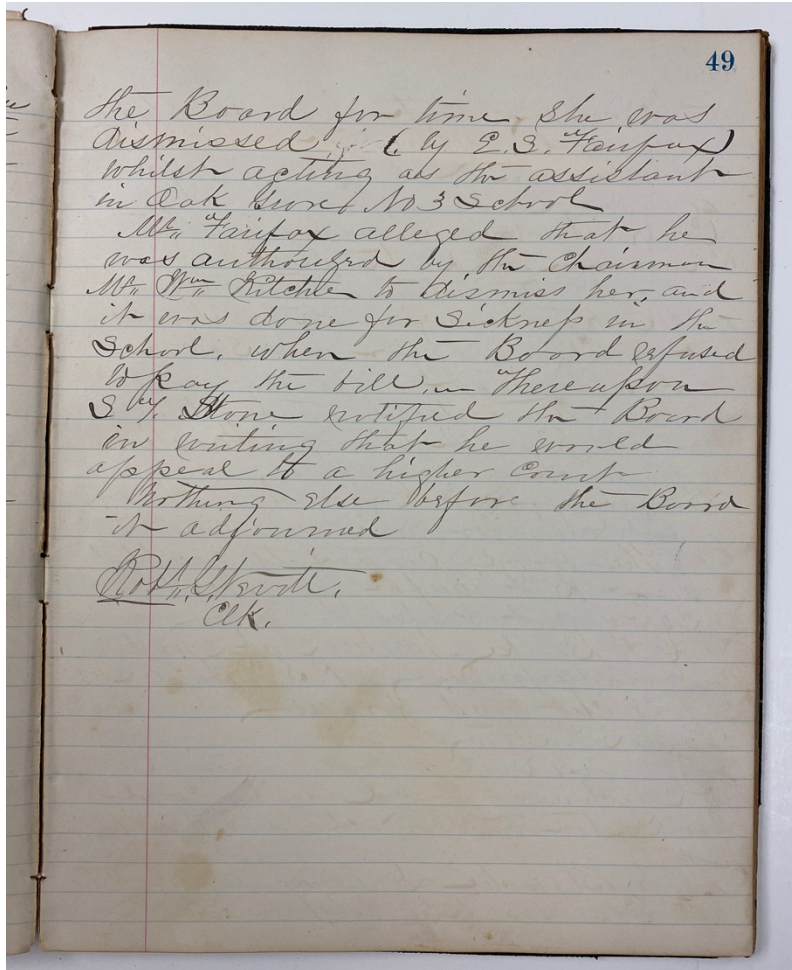 49
the Board for time she was
dismissed (by E. S. Fairfax)
whilst acting as the assistant
in Oak Grove No 3 School
Mr. Fairfax alleged that he
was authorized by the Chairman
Mr. Wm. Kitchen to dismiss her, and
it was done for Sickness in the
School, when the Board refused
to pay the bill, Thereupon
S Stone notified the Board
in writing that he would
appeal to a higher Court
Nothing else before the Board
it adjourned
Robt.
Clk.